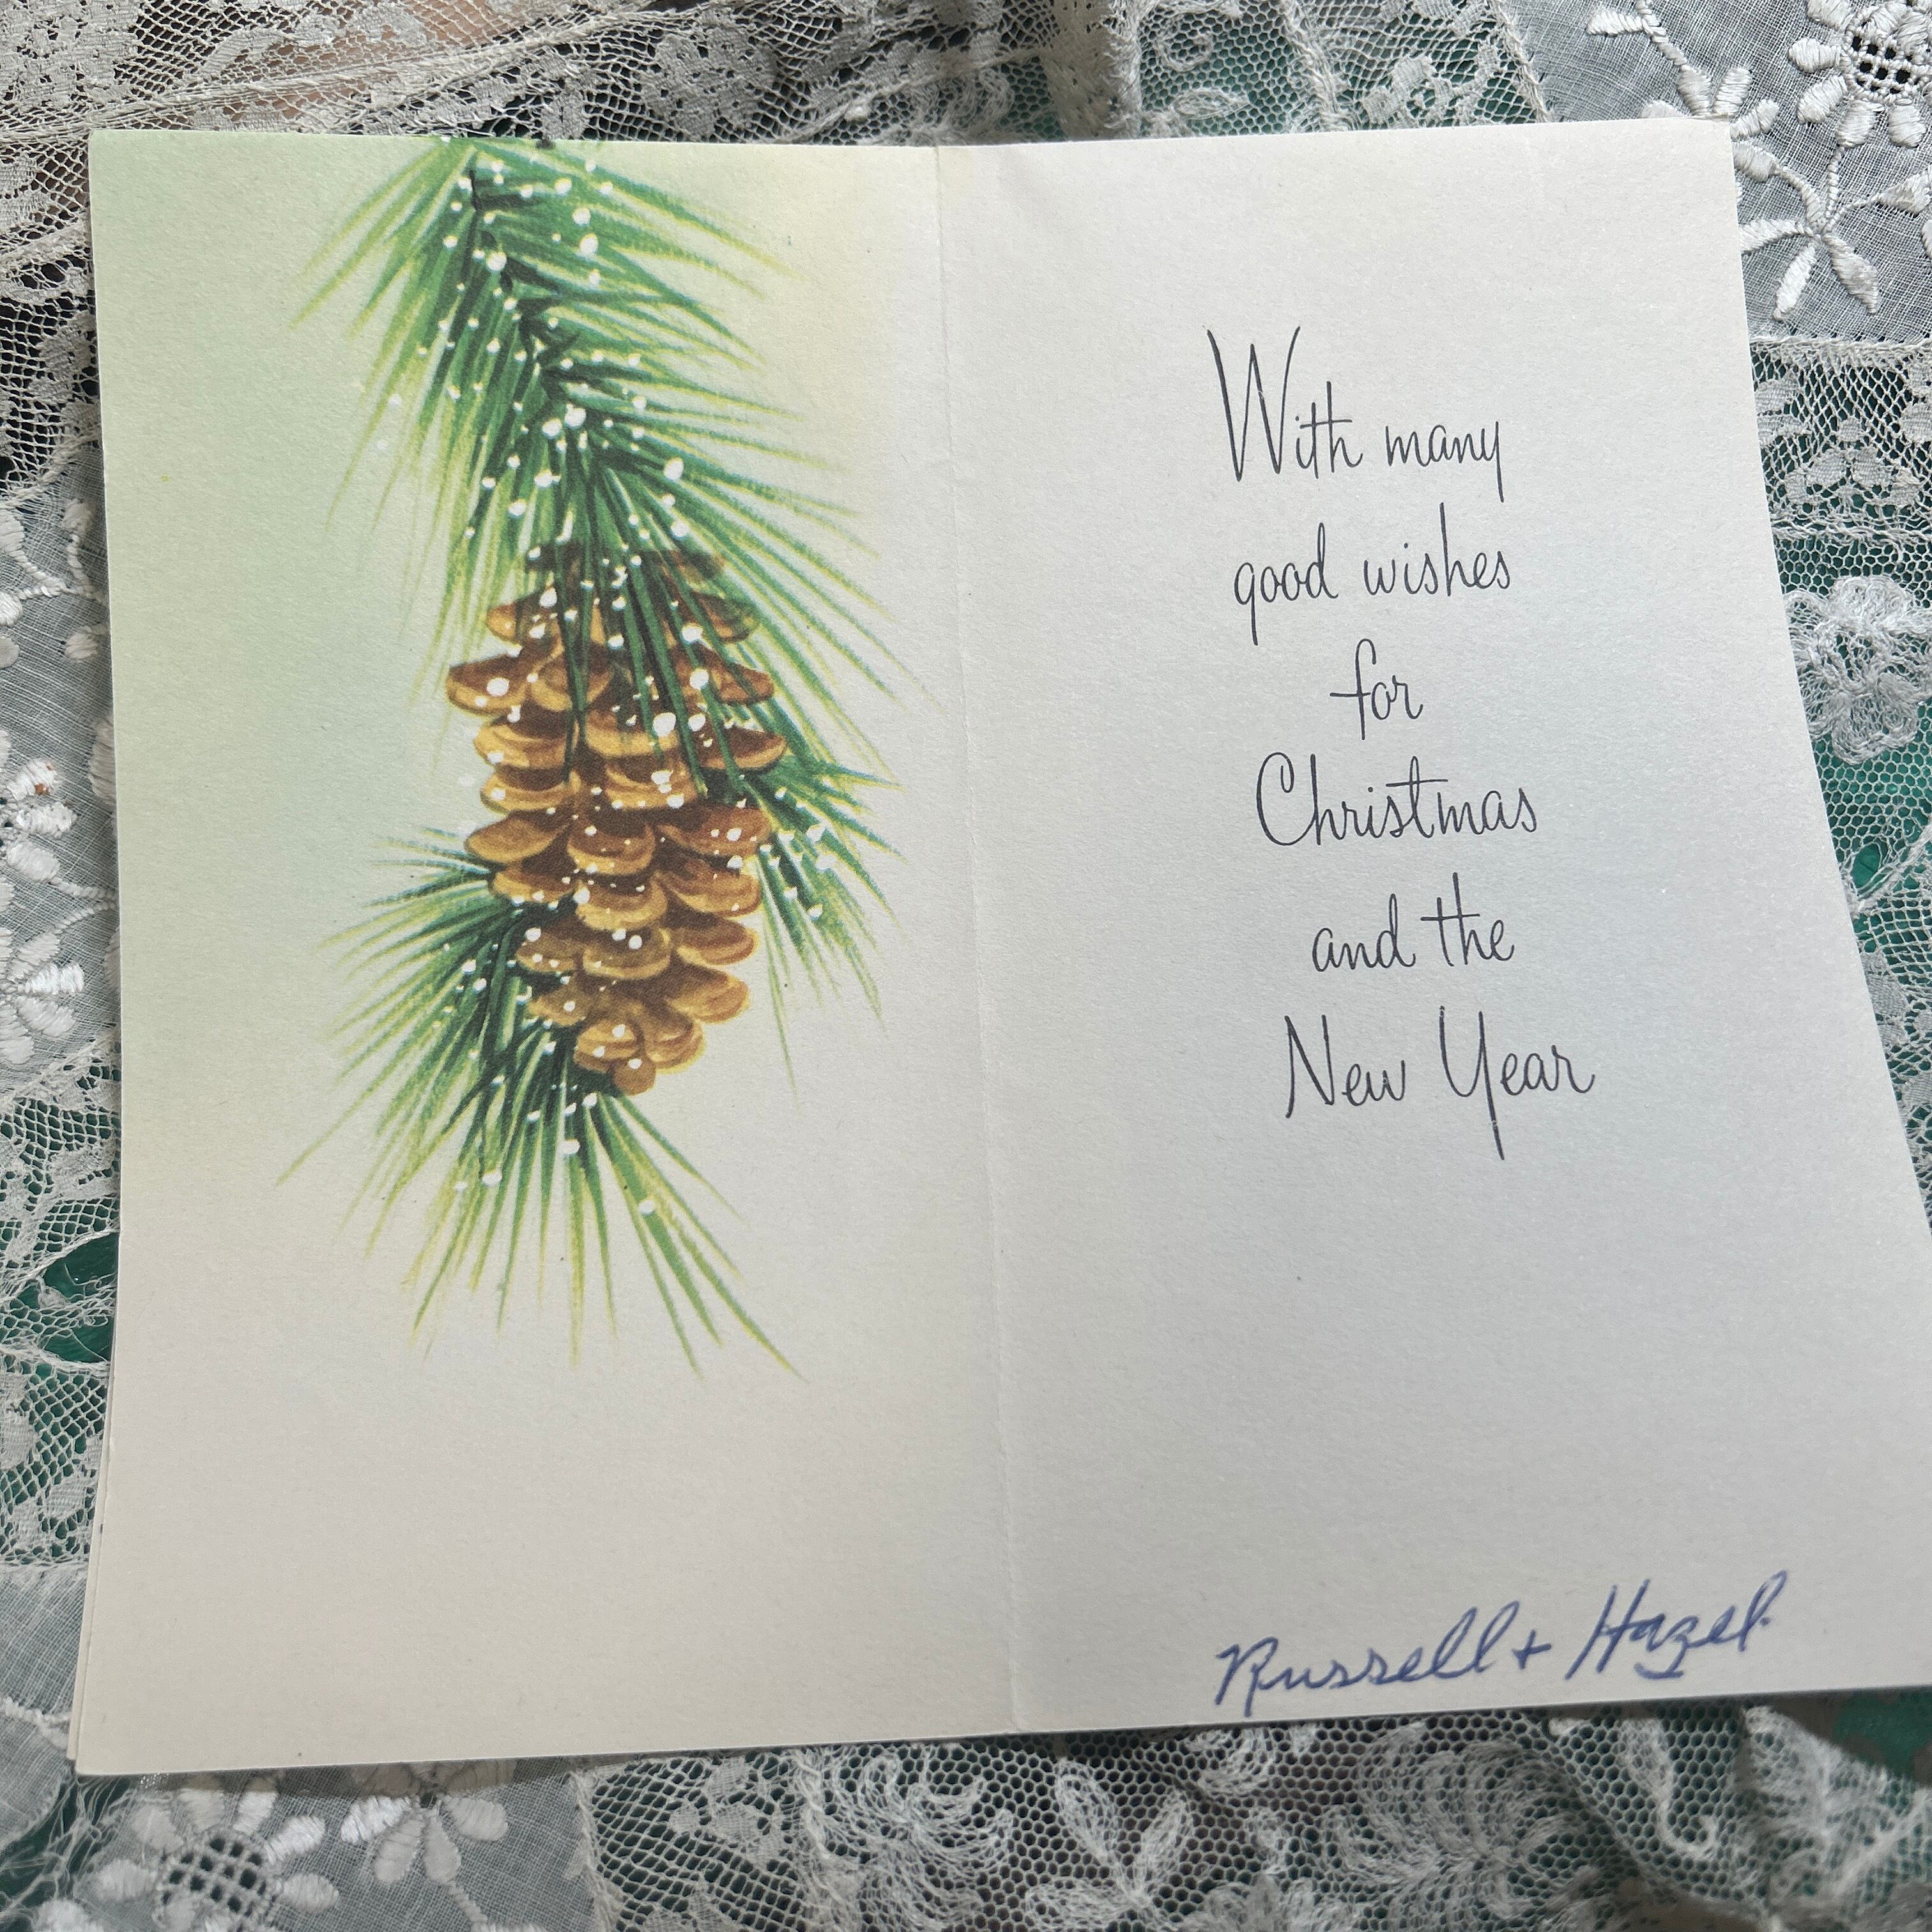 With many
good wishes
for
Christmas
and the
New Year
Russell + Hazel